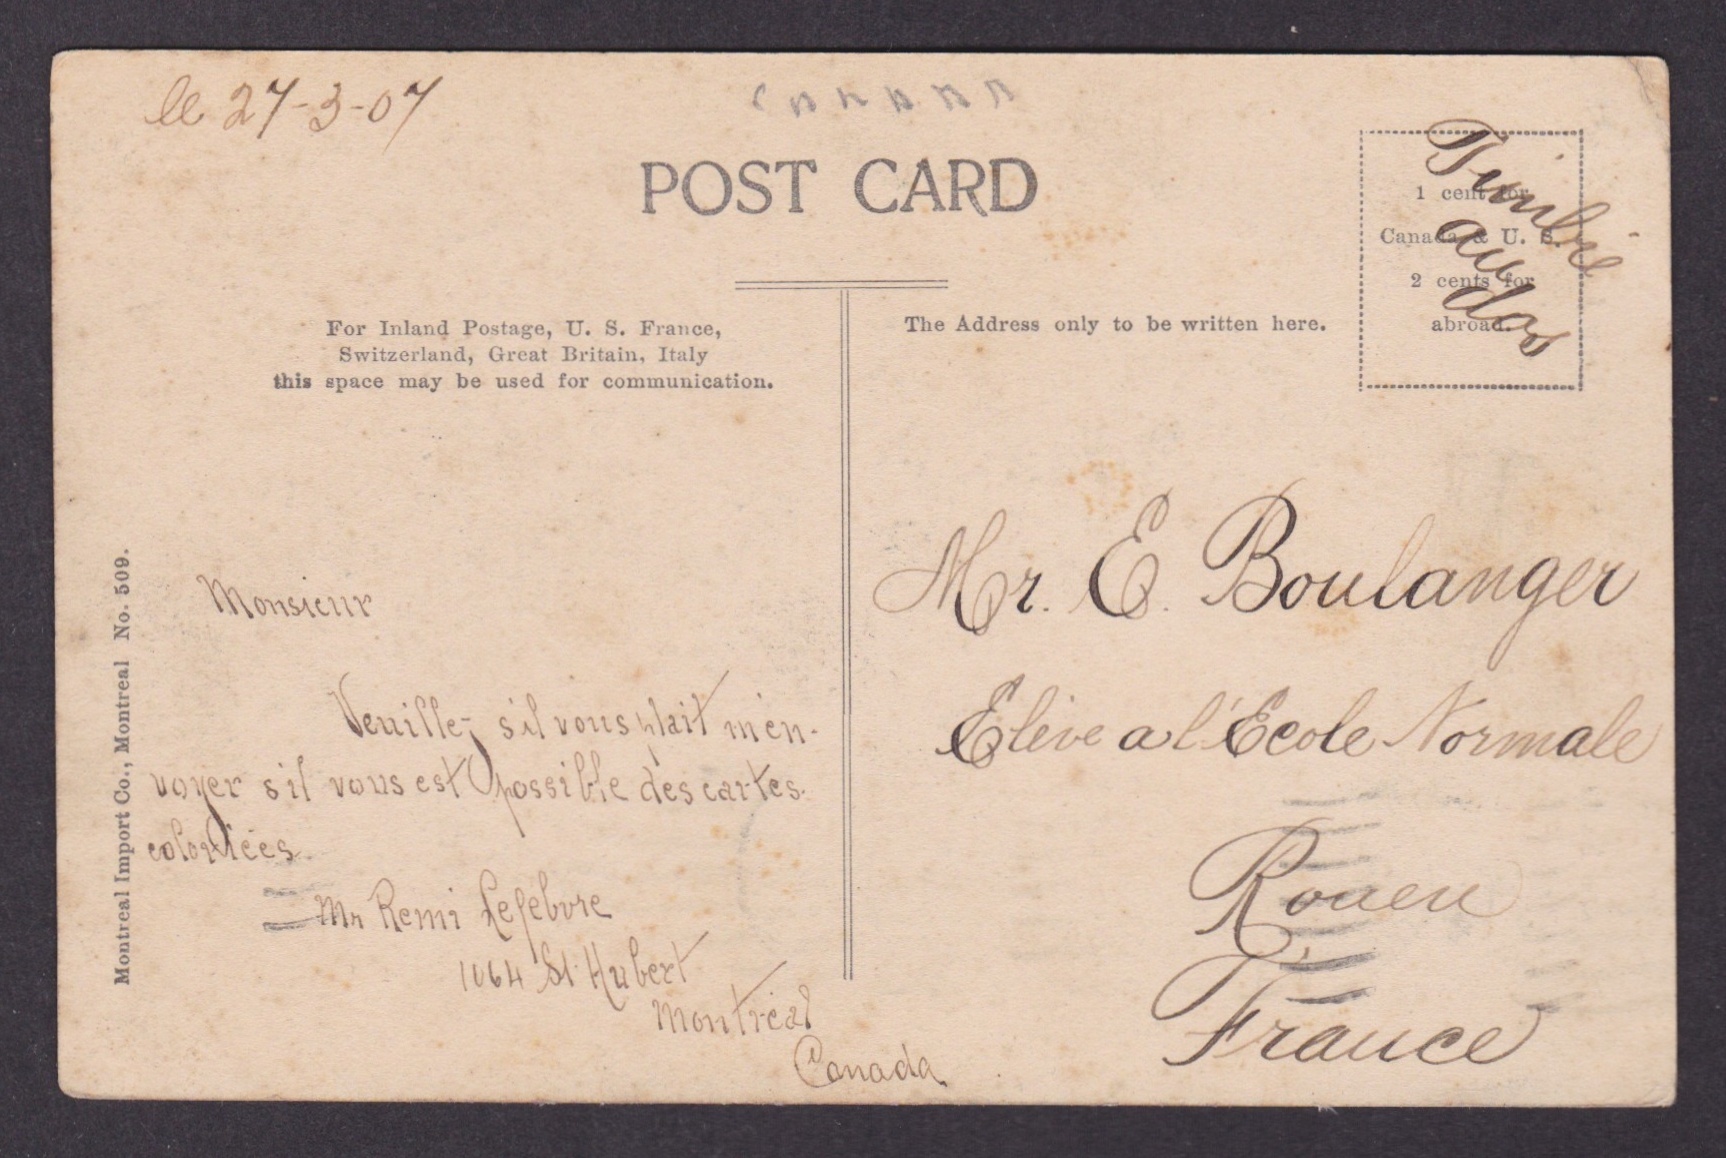 le 27-3-07
POST CARD
1 cent for
Canada & U. S.
2 cents for
abroad.
Timbre
au
dos
For Inland Postage, U. S. France,
Switzerland, Great Britain, Italy
this space may be used for communication.
The Address only to be written here.
Montreal Import Co., Montreal No. 509.
Monsieur
Veuillez s'il vous plait m'en-
voyer s'il vous est possible des cartes
coloriées.
Mr Remi Lefebvre
1064 St Hubert
Montréal
Canada
Mr. E. Boulanger
Elève a l'Ecole Normale
Rouen
France